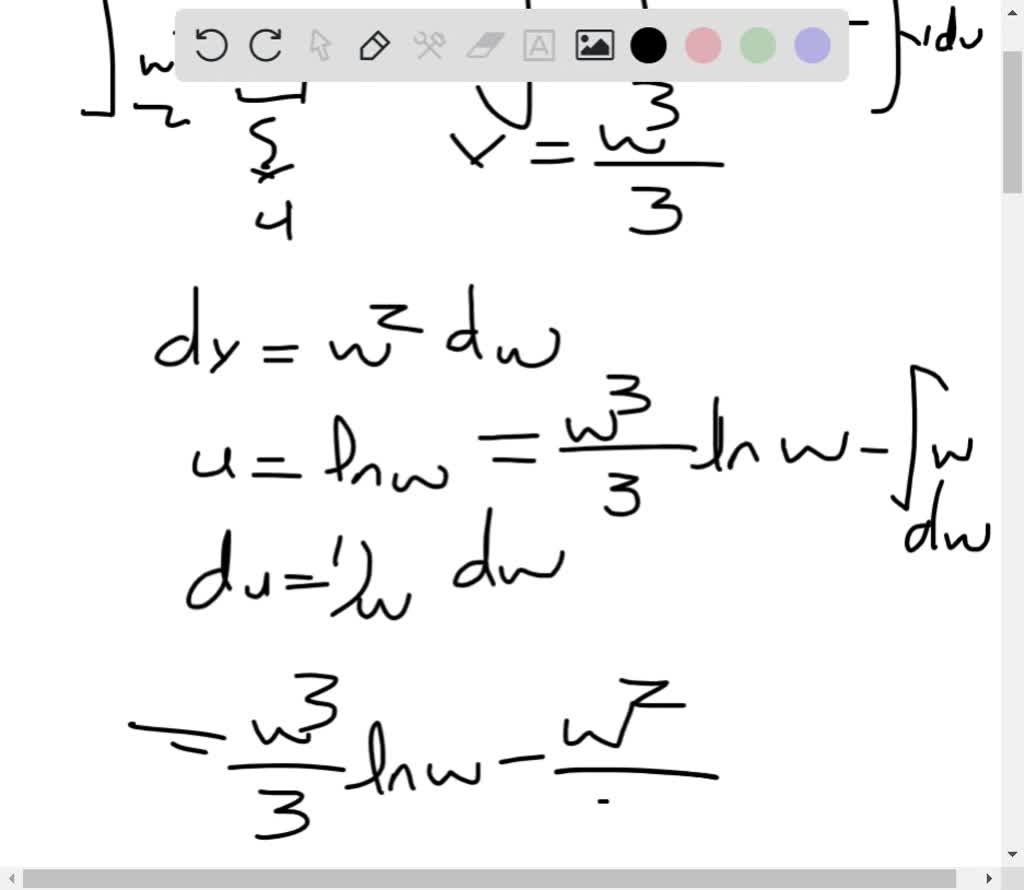 v = w³/3
dv = w² dw
u = ln w = w³/3 ln w - ∫ w dw
du = 1/w dw
= w³/3 ln w - w²/